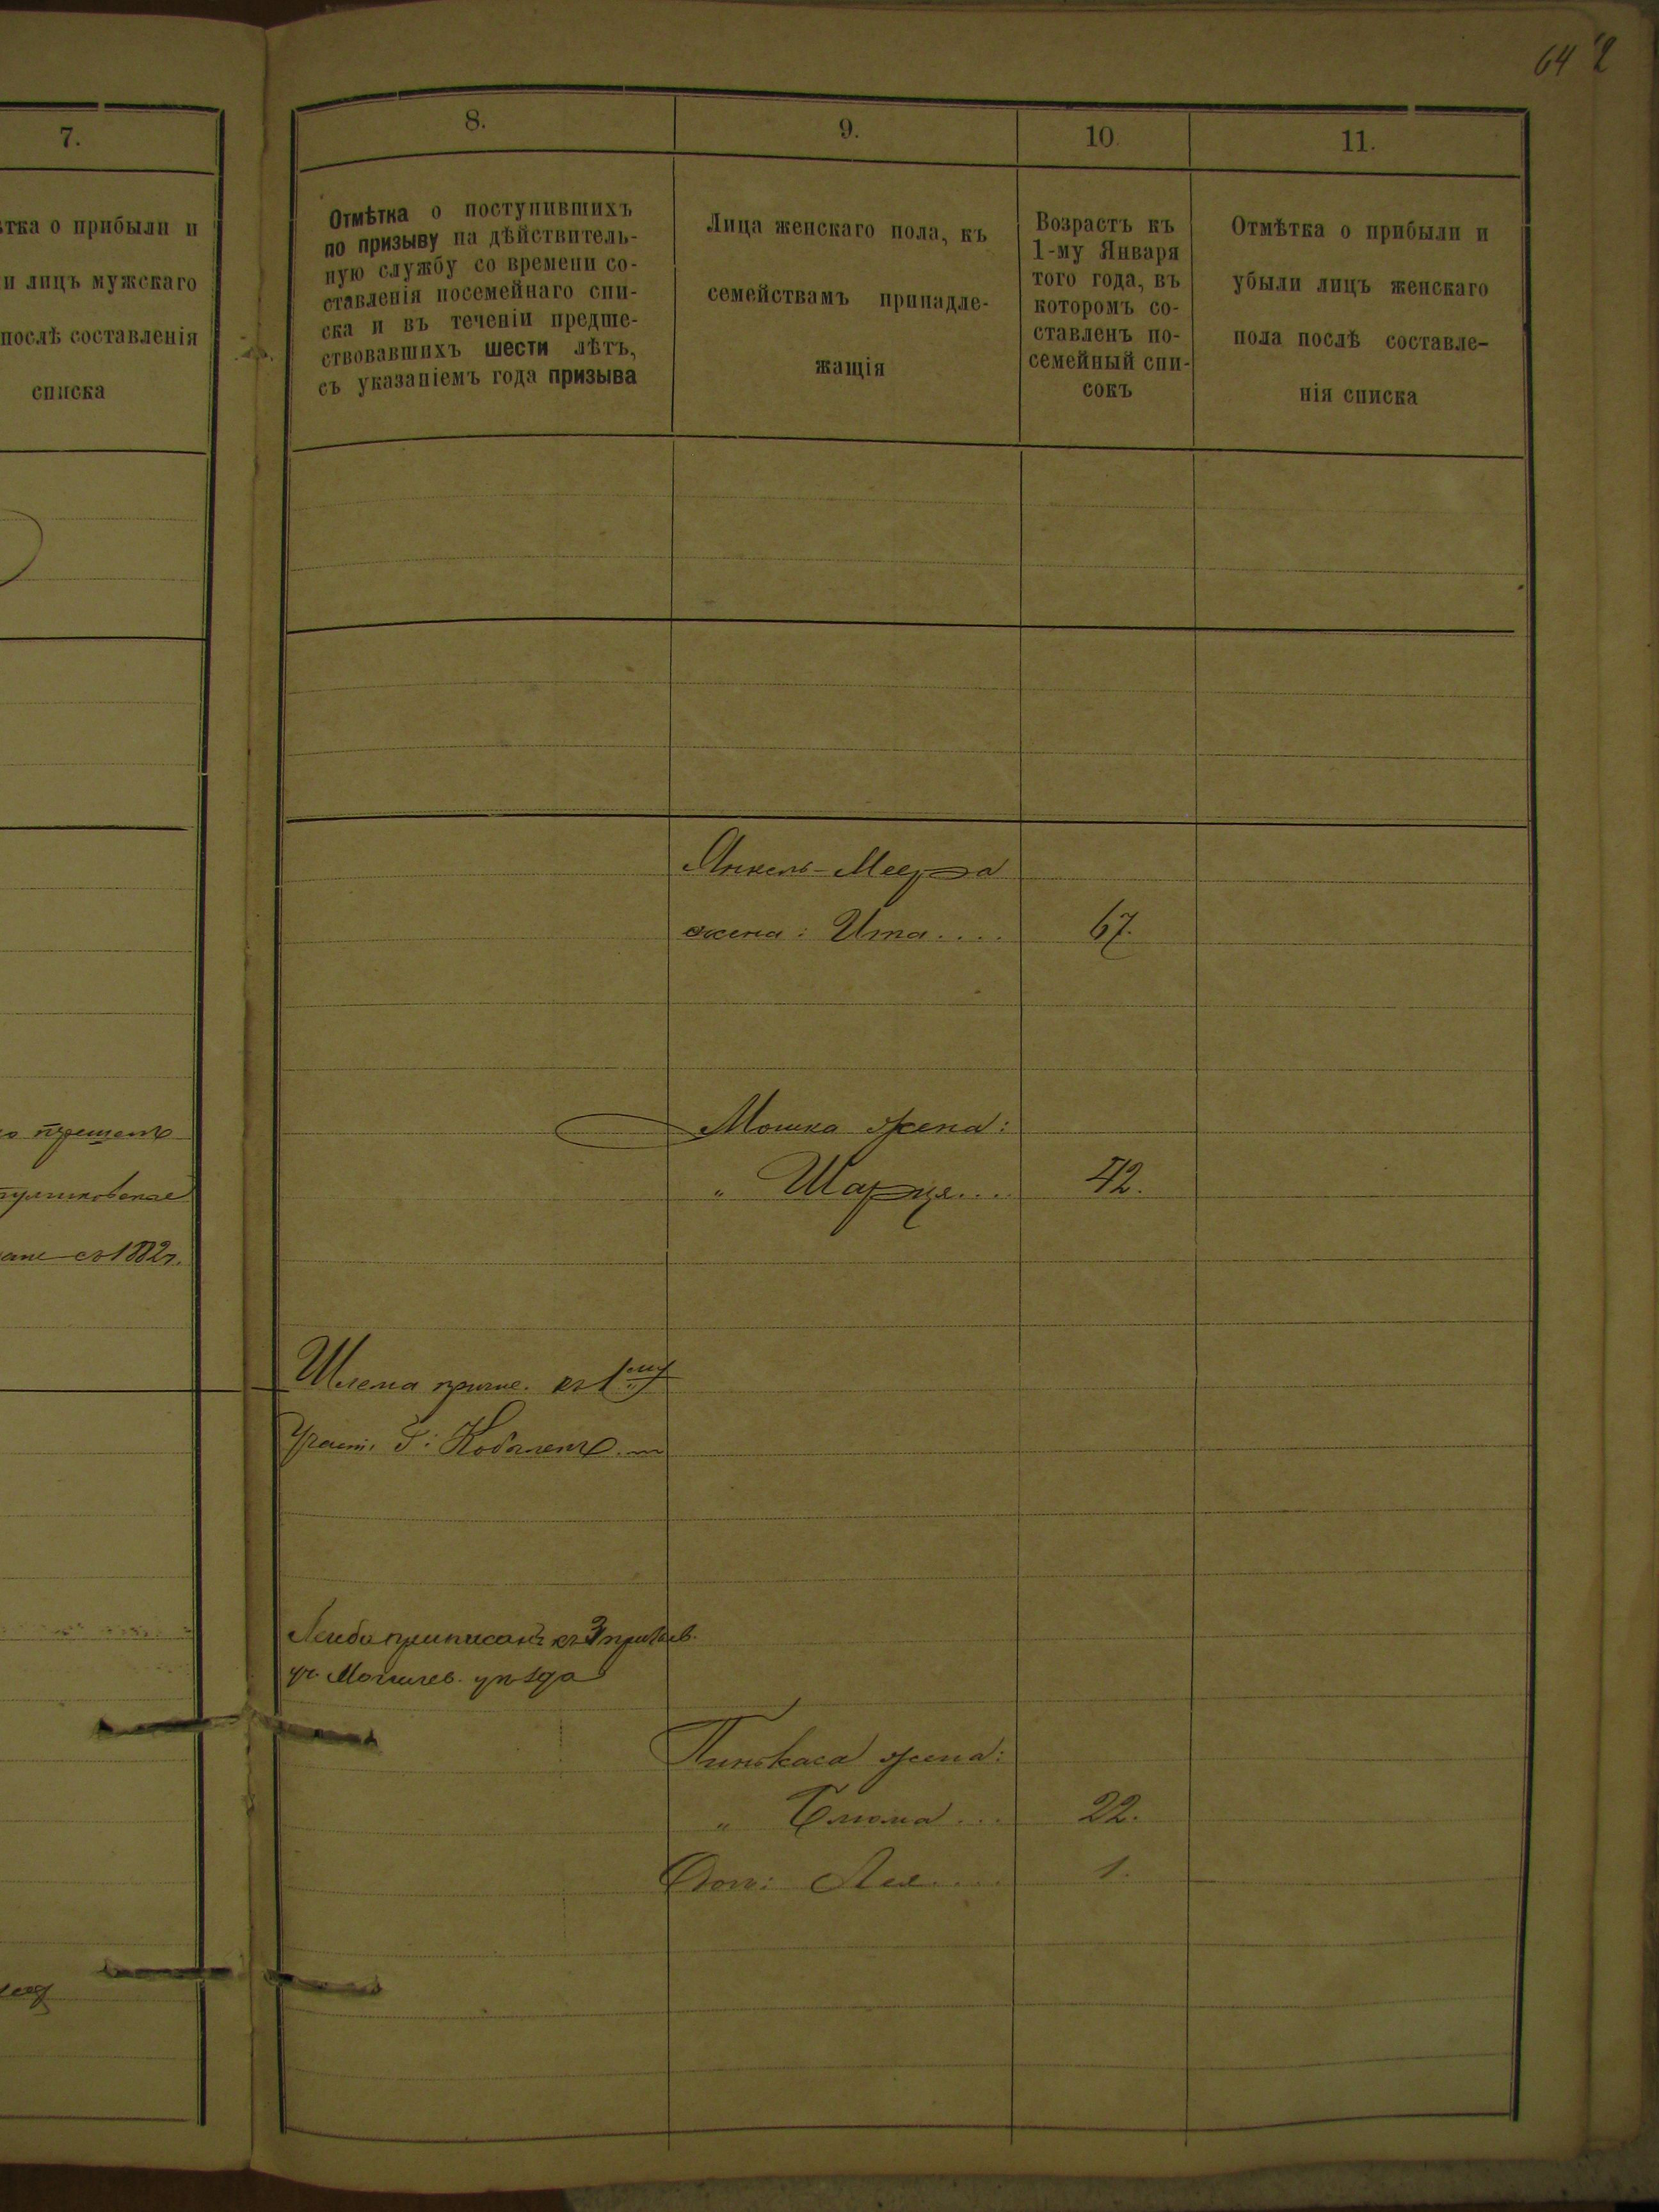 642
7.
тка о прибыли и
и лицъ мужскаго
послѣ составленія
списка
съ 1882 г.
8.
Отмѣтка о поступившихъ
по призыву на дѣйствитель-
ную службу со времени со-
ставленія посемейнаго спи-
ска и въ теченіи предше-
ствовавшихъ шести лѣтъ,
съ указаніемъ года призыва
9.
Лица женскаго пола, къ
семействамъ принадле-
жащія
10.
Возрастъ къ
1-му Января
того года, въ
которомъ со-
ставленъ по-
семейный спи-
сокъ
11.
Отмѣтка о прибыли и
убыли лицъ женскаго
пола послѣ составле-
нія списка
Янкель-Меера
жена: Ита.... 67.
Мошка жена:
„ Шарця.... 42.
Шлема припис. къ 1му
Участ. Г.
Лейба приписанъ къ 3 призыв.
уч. Могилев. уѣзда
Пинхаса жена:
„ Блюма... 22.
Доч: Лея.... 1.